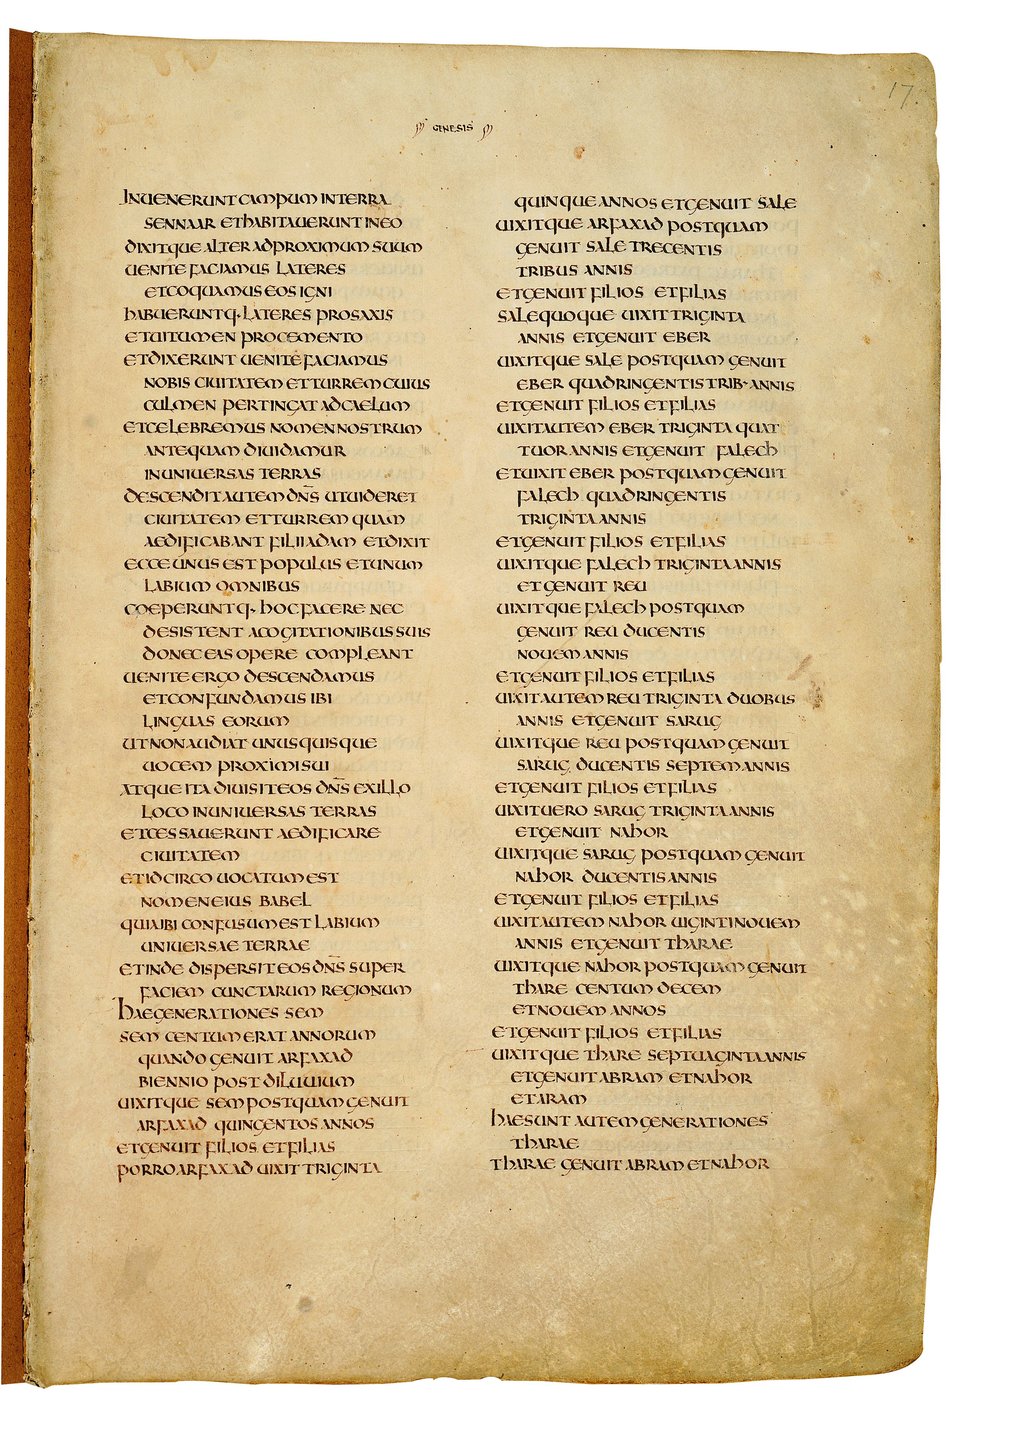 17.
GENESIS
INUENERUNT CAMPUM IN TERRA
SENNAAR ET HABITAUERUNT IN EO
DIXITQUE ALTER AD PROXIMUM SUUM
UENITE FACIAMUS LATERES
ET COQUAMUS EOS IGNI
HABUERUNTQ· LATERES PRO SAXIS
ET UITUMEN PRO CEMENTO
ET DIXERUNT UENITE FACIAMUS
NOBIS CIUITATEM ET TURREM CUIUS
CULMEN PERTINGAT AD CAELUM
ET CELEBREMUS NOMEN NOSTRUM
ANTEQUAM DIUIDAMUR
IN UNIUERSAS TERRAS
DESCENDIT AUTEM DN̅S UT UIDERET
CIUITATEM ET TURREM QUAM
AEDIFICABANT FILII ADAM ET DIXIT
ECCE UNUS EST POPULUS ET UNUM
LABIUM OMNIBUS
COEPERUNTQ· HOC FACERE NEC
DESISTENT A COGITATIONIBUS SUIS
DONEC EAS OPERE COMPLEANT
UENITE ERGO DESCENDAMUS
ET CONFUNDAMUS IBI
LINGUAS EORUM
UT NON AUDIAT UNUSQUISQUE
UOCEM PROXIMI SUI
ATQUE ITA DIUISIT EOS DN̅S EX ILLO
LOCO IN UNIUERSAS TERRAS
ET CESSAUERUNT AEDIFICARE
CIUITATEM
ET IDCIRCO UOCATUM EST
NOMEN EIUS BABEL
QUIA IBI CONFUSUM EST LABIUM
UNIUERSAE TERRAE
ET INDE DISPERSIT EOS DN̅S SUPER
FACIEM CUNCTARUM REGIONUM
HAE GENERATIONES SEM
SEM CENTUM ERAT ANNORUM
QUANDO GENUIT ARFAXAD
BIENNIO POST DILUUIUM
UIXITQUE SEM POSTQUAM GENUIT
ARFAXAD QUINGENTOS ANNOS
ET GENUIT FILIOS ET FILIAS
PORRO ARFAXAD UIXIT TRIGINTA
QUINQUE ANNOS ET GENUIT SALE
UIXITQUE ARFAXAD POSTQUAM
GENUIT SALE TRECENTIS
TRIBUS ANNIS
ET GENUIT FILIOS ET FILIAS
SALE QUOQUE UIXIT TRIGINTA
ANNIS ET GENUIT EBER
UIXITQUE SALE POSTQUAM GENUIT
EBER QUADRINGENTIS TRIB· ANNIS
ET GENUIT FILIOS ET FILIAS
UIXIT AUTEM EBER TRIGINTA QUAT
TUOR ANNIS ET GENUIT FALECH
ET UIXIT EBER POSTQUAM GENUIT
FALECH QUADRINGENTIS
TRIGINTA ANNIS
ET GENUIT FILIOS ET FILIAS
UIXITQUE FALECH TRIGINTA ANNIS
ET GENUIT REU
UIXITQUE FALECH POSTQUAM
GENUIT REU DUCENTIS
NOUEM ANNIS
ET GENUIT FILIOS ET FILIAS
UIXIT AUTEM REU TRIGINTA DUOBUS
ANNIS ET GENUIT SARUG
UIXITQUE REU POSTQUAM GENUIT
SARUG DUCENTIS SEPTEM ANNIS
ET GENUIT FILIOS ET FILIAS
UIXIT UERO SARUG TRIGINTA ANNIS
ET GENUIT NAHOR
UIXITQUE SARUG POSTQUAM GENUIT
NAHOR DUCENTIS ANNIS
ET GENUIT FILIOS ET FILIAS
UIXIT AUTEM NAHOR UIGINTI NOUEM
ANNIS ET GENUIT THARAE
UIXITQUE NAHOR POSTQUAM GENUIT
THARE CENTUM DECEM
ET NOUEM ANNOS
ET GENUIT FILIOS ET FILIAS
UIXITQUE THARE SEPTUAGINTA ANNIS
ET GENUIT ABRAM ET NAHOR
ET ARAM
HAE SUNT AUTEM GENERATIONES
THARAE
THARAE GENUIT ABRAM ET NAHOR